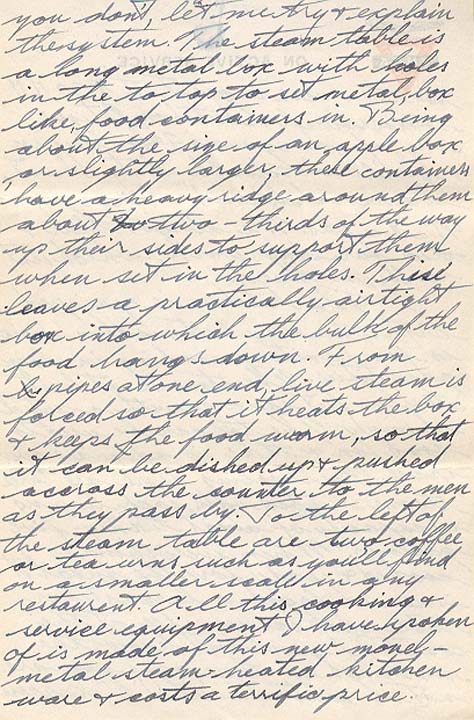 you don't, let me try & explain
the system. The steam table is
a long metal box with holes
in the to top to set metal, box
like, food containers in. Being
about the size of an apple box
or slightly larger, these containers
have a heavy ridge around them
about two-thirds of the way
up their sides to support them
when set in the holes. This
leaves a practically airtight
box into which the bulk of the
food hangs down. From
pipes at one end, live steam is
forced so that it heats the box
& keeps the food warm, so that
it can be dished up & pushed
accross the counter to the men
as they pass by. To the left of
the steam table are two, coffee
or tea urns such as you'll find
on a smaller scale in any
restaurent. All this cooking &
service equipment I have spoken
of is made of this new monel-
metal steam-heated kitchen
ware & costs a terrific price.